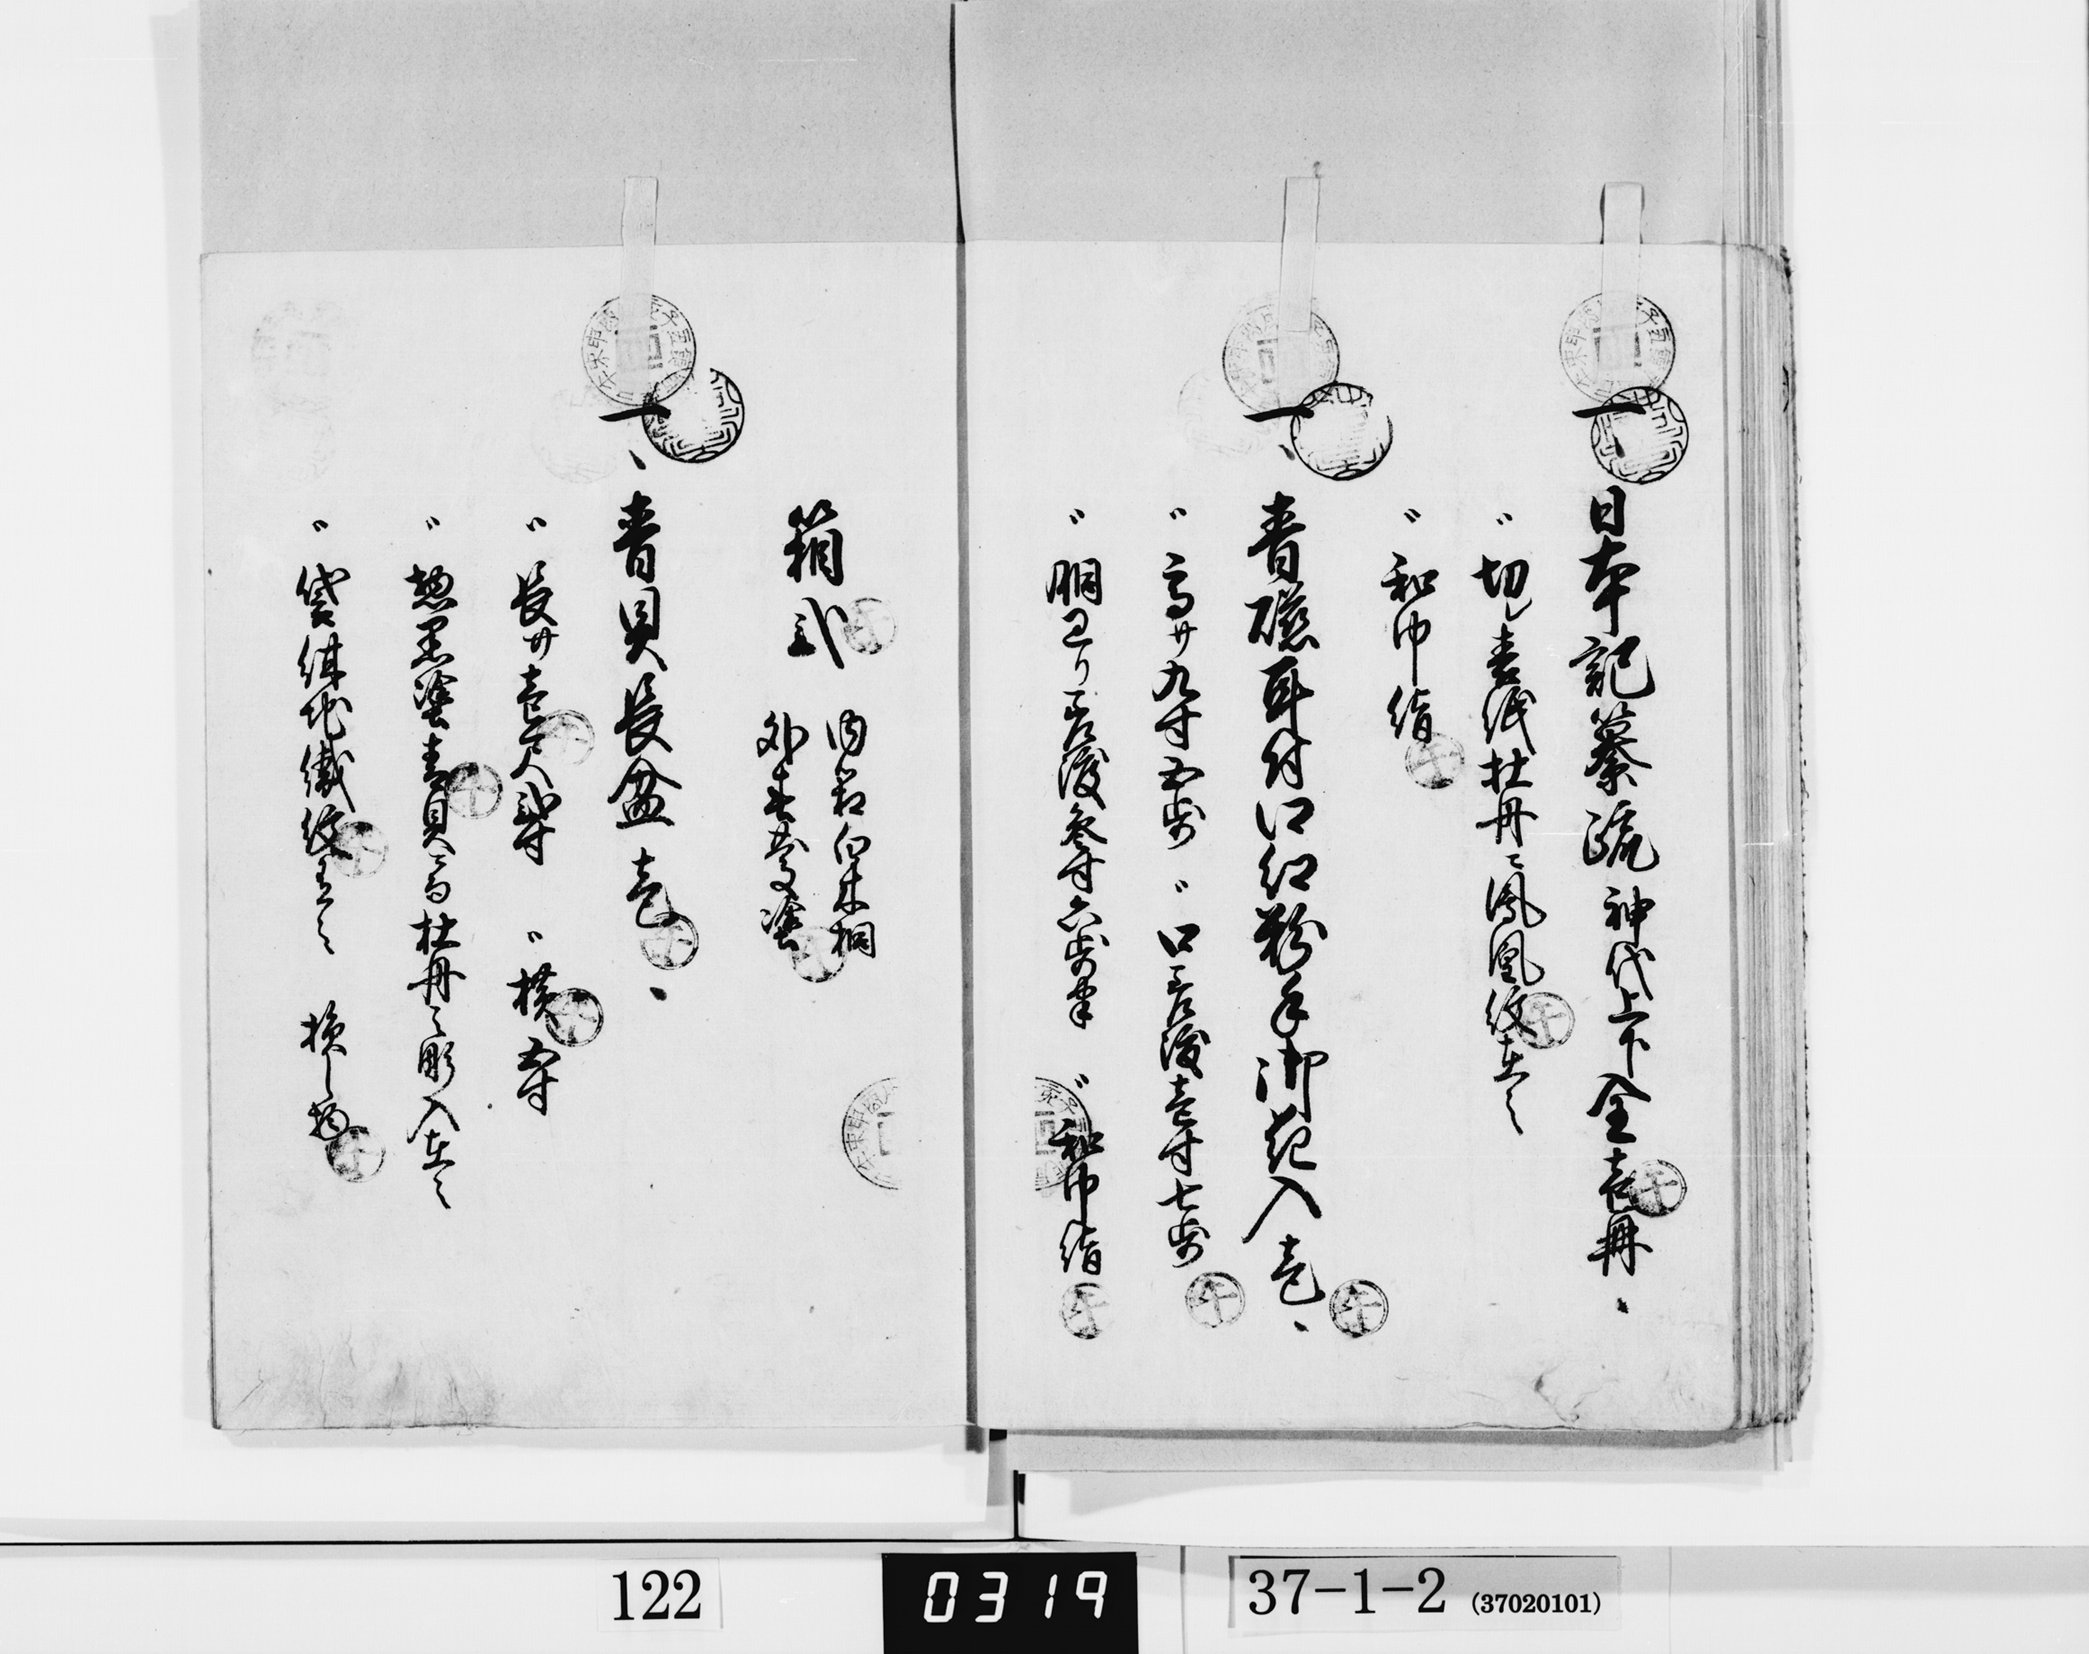 一、日本記纂疏 神代上下 全壱冊、
〃切レ表紙杜丹ニ鳳凰紋在之
〃和巾袋
一、青磁耳付口紅粉手御花入壱、
〃高サ九寸五歩 〃口差渡壱寸七歩
〃胴廻リ差渡参寸六歩半 〃和巾袋
箱弐 内箱白木桐
外春慶塗
一、青貝長盆壱、
〃長サ壱尺弐寸 〃横五寸
〃惣黒塗青貝ニ而杜丹之彫入在之
〃袋緋地繊紋有之
122
0319
37-1-2 (37020101)